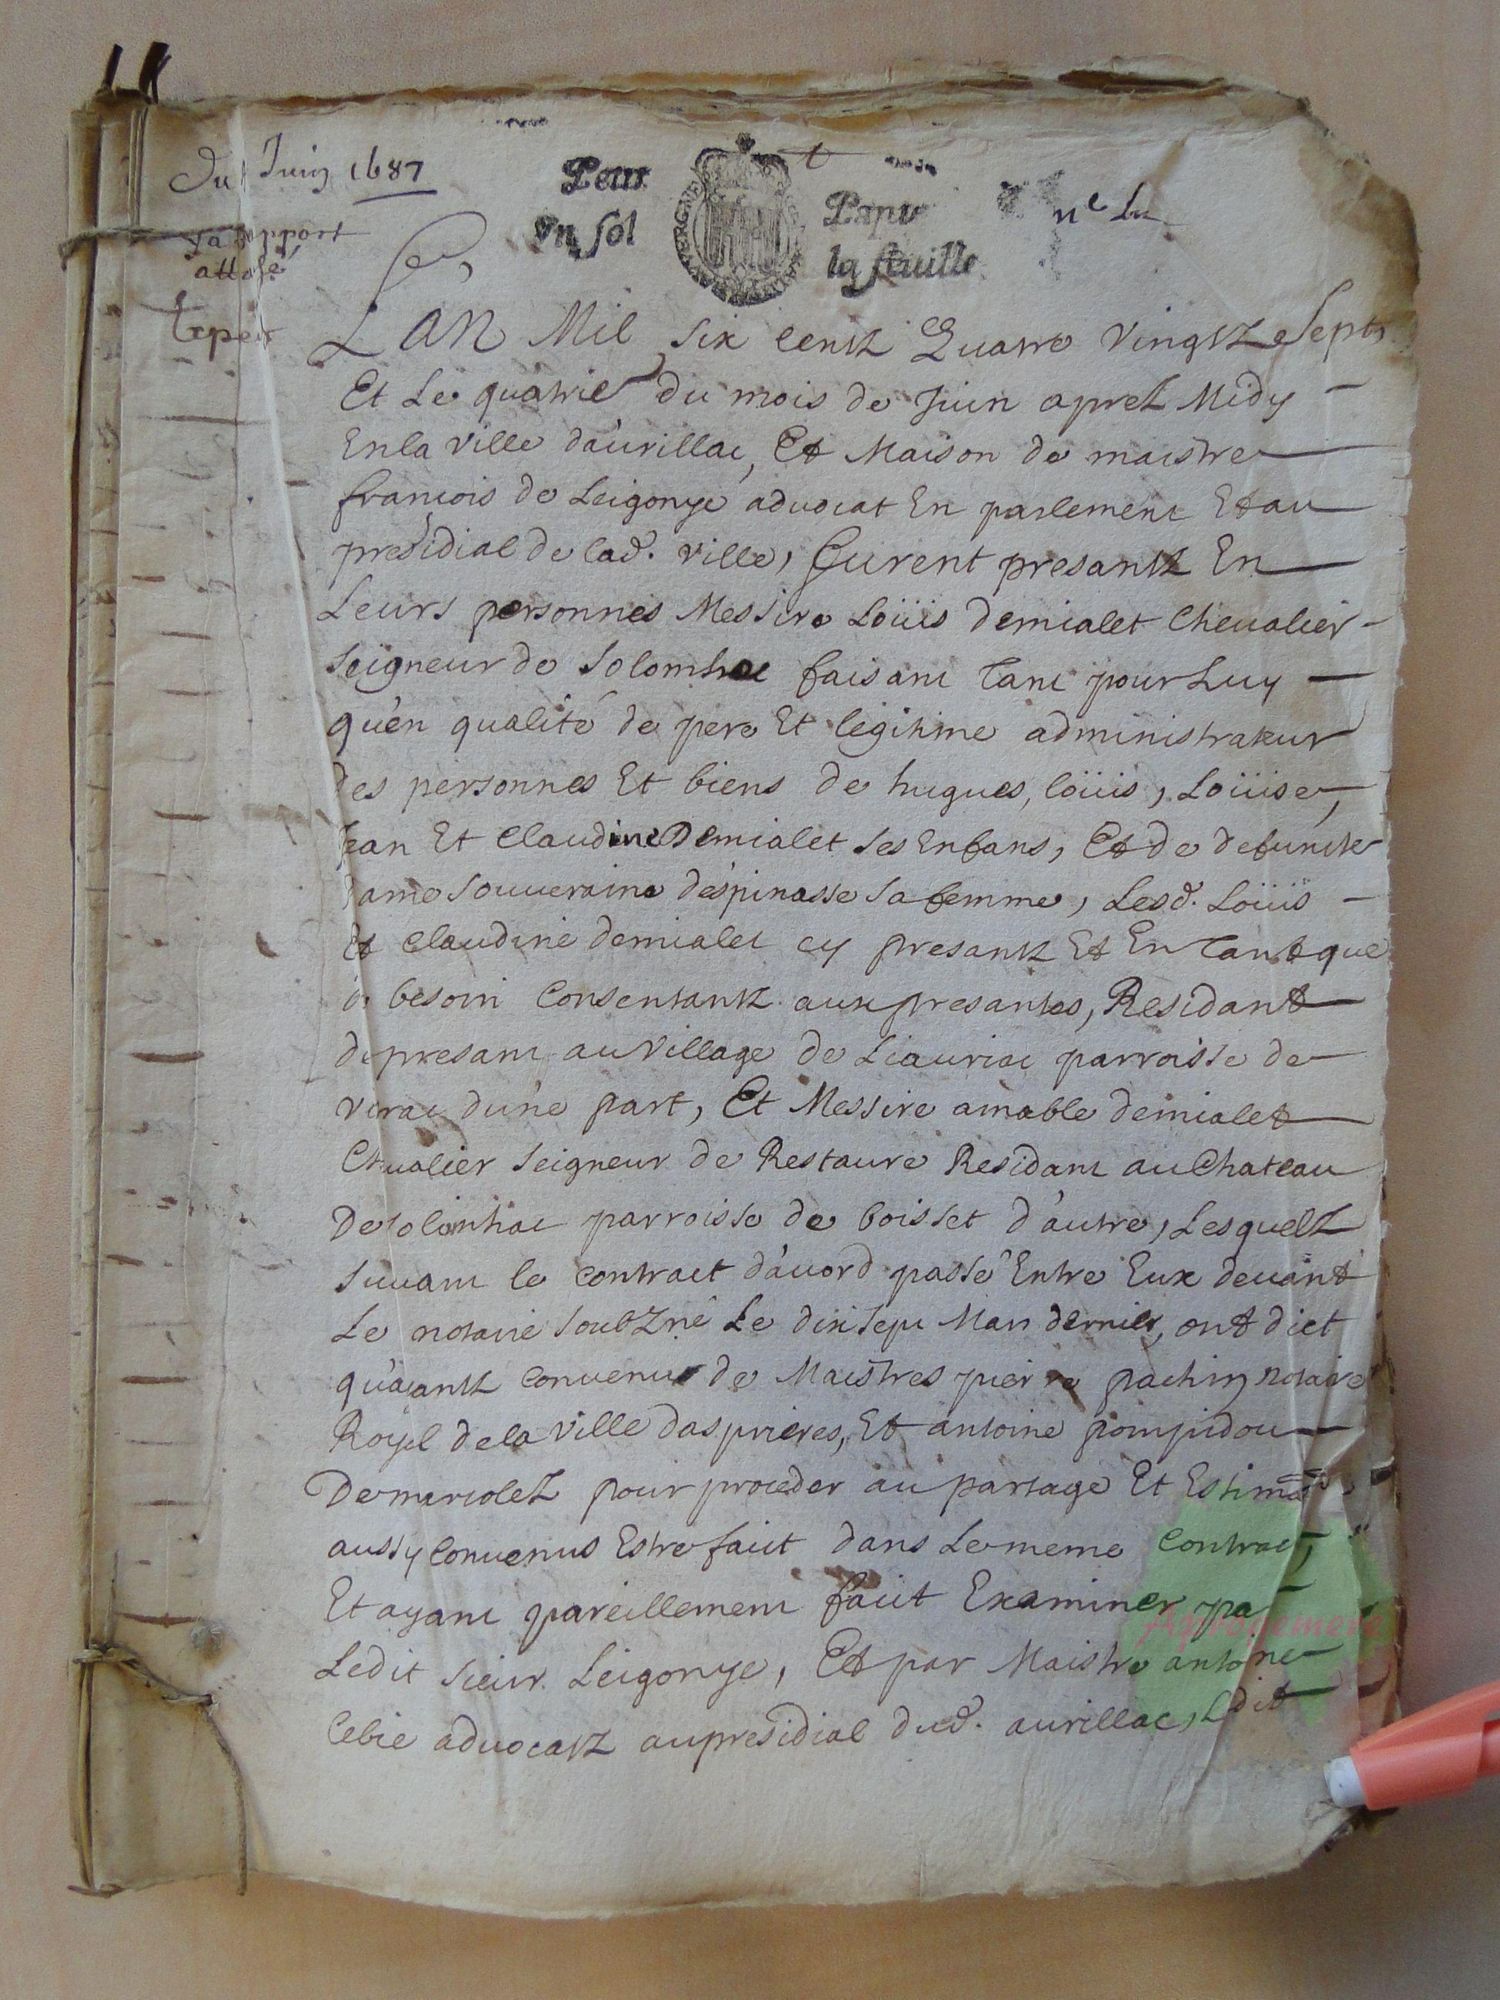 Du Juin 1687
Petit Papier
Un sol la feuille
ya rapport
attaché
Expéé
L'AN Mil six centz Quatre vingtz Sept,
Et Le quatrie du mois de Juin aprez Midy
En la ville d'aurillac, Et Maison de maistre
francois de Leigonye advocat En parlement Et au
presidial de lad. ville, Furent presantz En
Leurs personnes Messire Loüis demialet Chevalier
seigneur de solomhac faisant Tant pour Luy
qu'en qualité de pere Et legitime administrateur
des personnes Et biens de hugues, loüis, Loüise,
Jean Et Claudine Demialet ses Enfans, Et de defuncte
dame souveraine d'espinasse sa femme, Lesd. Loüis
Et Claudine demialet cy presantz Et En Tant que
de besoin Consentantz aux presantes, Residant
de presant au village de Liauriac parroisse de
Vitrac d'une part, Et Messire amable demialet
Chevalier seigneur de Restaure Residant au Chateau
De solomhac parroisse de boisset d'autre, Lesquelz
suivant le contract d'acord passé Entre Eux devant
Le notaire soubzné Le dix sept Mars dernier, ont dict
qu'ayantz convenus de Maistres pierre pachin notaire
Royel de la Ville d'asprieres, Et antoine pompidou
De marcolez pour proceder au partage Et Estimaon,
aussy convenus Estre faict dans Le meme Contract,
Et ayant pareillement faict Examiner par
Ledit sieur Leigonye, Et par Maistre antoine
Cebié advocatz au presidial dud. aurillac, Ldit